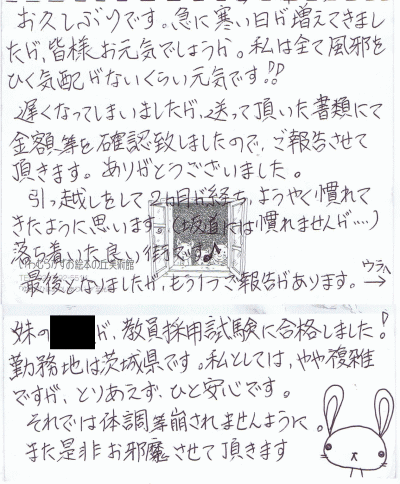 お久しぶりです。急に寒い日が増えてきまし
たが、皆様お元気でしょうか。私は全く風邪を
ひく気配がないくらい元気です!!
遅くなってしまいましたが、送って頂いた書類にて
金額等を確認致しましたので、ご報告させて
頂きます。ありがとうございました。
引っ越しをして2ヶ月が経ち、ようやく慣れて
きたように思います。(坂道には慣れませんが…)
落ち着いた良い街です♪
いわむらかずお絵本の丘美術館
最後となりましたが、もう1つご報告があります。→
ウラへ
妹の が、教員採用試験に合格しました!
勤務地は茨城県です。私としては、やや複雑
ですが、とりあえず、ひと安心です。
それでは体調等崩されませんように。
また是非お邪魔させて頂きます